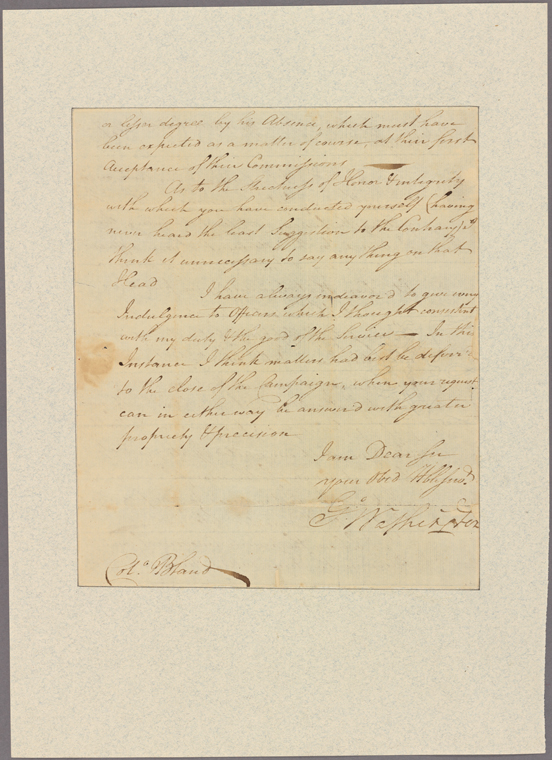 or lesser degree by his Absence, which must have
been expected as a matter of course, at their first
Acceptance of their Commissions
As to the Strictness of Honor & integrity
with which you have conducted yourself (having
never heard the least Suggestion to the Contrary) I
think it unnecessary to say any thing on that
Head
I have always endeavor'd to give every
Indulgence to Officers which I thought consistent
with my duty & the good of the Service — In this
Instance I think matters had best be defer'd
to the close of the Campaign, when your request
can in either way be answer'd with greater
propriety & precision
I am Dear Sir
your Obed Hble Servt
Go Washington
Colo. Bland